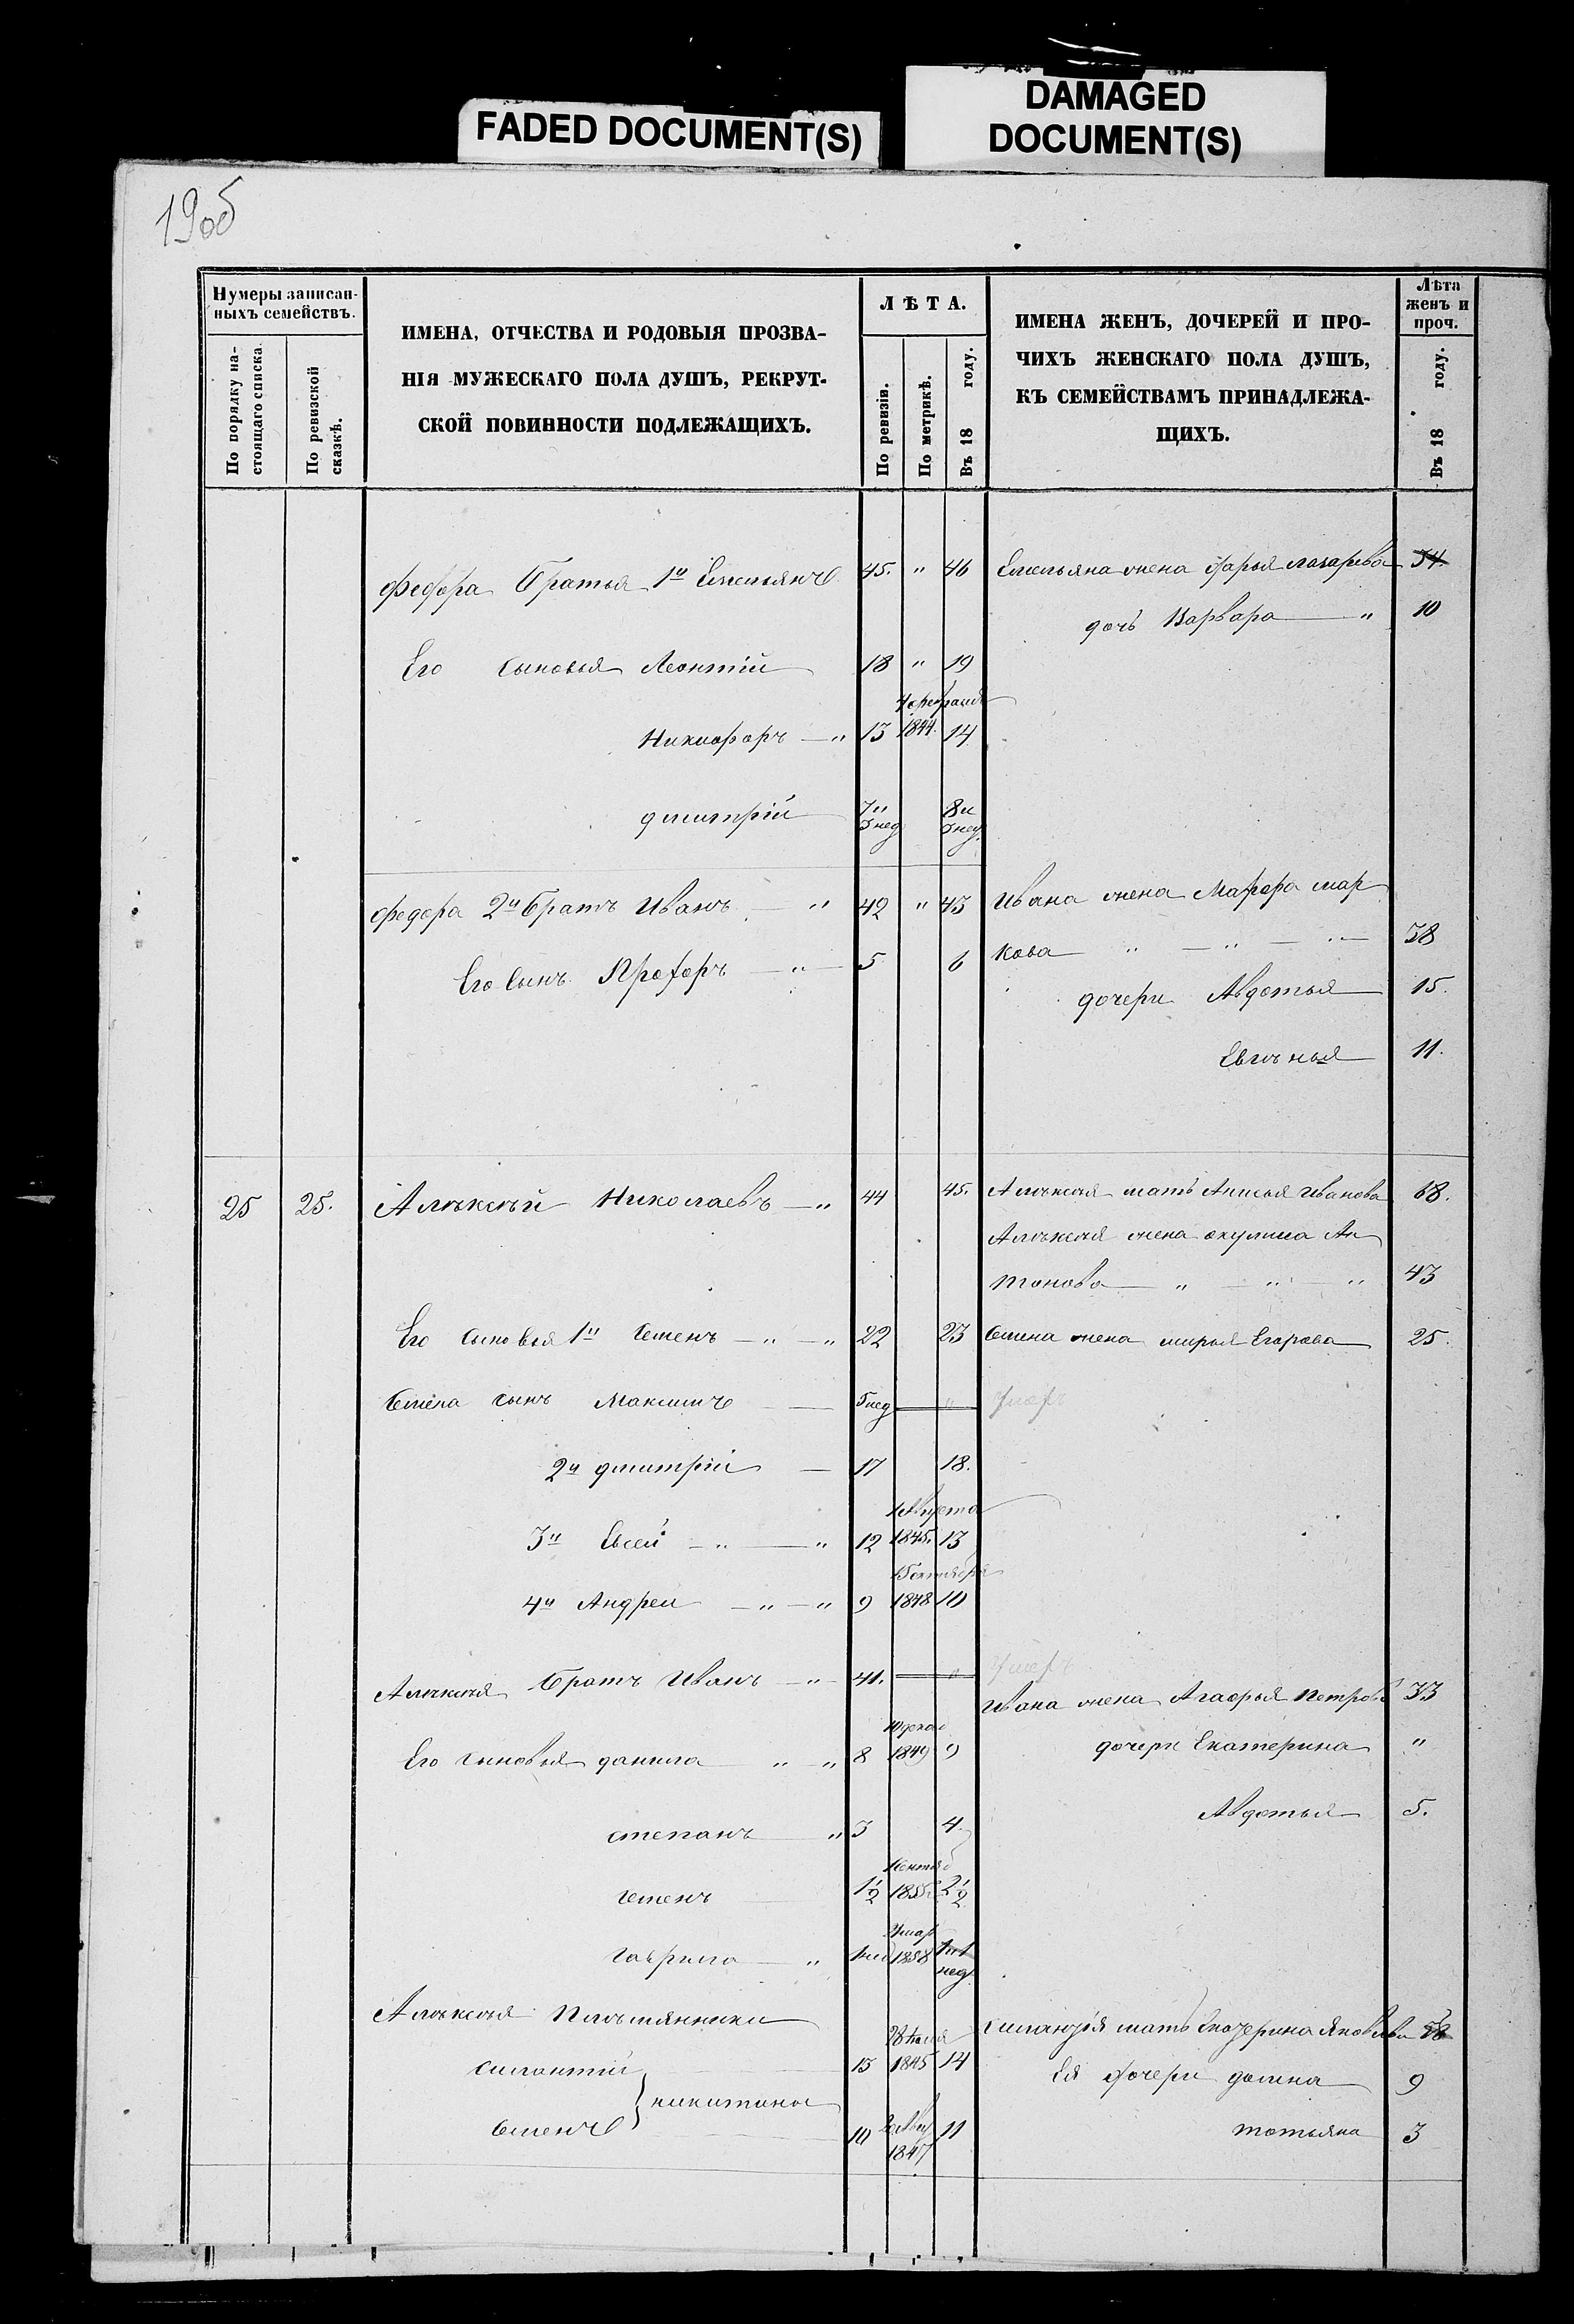 FADED DOCUMENT(S)
DAMAGED
DOCUMENT(S)
19об
Нумеры записан-
ныхъ семействъ.
По порядку на-
стоящаго списка.
По ревизской
сказкѣ.
ИМЕНА, ОТЧЕСТВА И РОДОВЫЯ ПРОЗВА-
НІЯ МУЖЕСКАГО ПОЛА ДУШЪ, РЕКРУТ-
СКОЙ ПОВИННОСТИ ПОДЛЕЖАЩИХЪ.
ЛѢТА.
По ревизіи.
По метрикѣ.
Въ 18 году.
ИМЕНА ЖЕНЪ, ДОЧЕРЕЙ И ПРО-
ЧИХЪ ЖЕНСКАГО ПОЛА ДУШЪ,
КЪ СЕМЕЙСТВАМЪ ПРИНАДЛЕЖА-
ЩИХЪ.
Лѣта
женъ и
проч.
Въ 18 году.
Федора Братья 1й Емельянъ 45. " 46 Емельяна жена дарья лазарева 34
дочь Варвара " 10
Его Сыновья Леонтій 18 " 19
7 февраля
Никифоръ " 13 1844. 14
дмитрій 7и 5 нед 8и 5 нед.
федора 2й братъ Иванъ " 42 " 43 Ивана жена Марфа мар
кова " " " 38
Его Сынъ Профоръ " 5 6
дочери Авдотья 15.
Евгѣнья 11.
25 25. Алѣксѣй Николаевъ " 44 45. Алѣксѣя мать Анисья Иванова 68.
Алѣксѣя жена окулина Ан
тонова " " " 43
Его Сыновья 1й Семенъ " " 22 23 Семена жена марья Егорова 25.
Семена сынъ Максимъ 5 нед " Умеръ
2й дмитрій 17 18.
1 Августа
3й Евсей " " 12 1845. 13
Сентября
4й Андрей " " 9 1848 10
Алѣксѣя Братъ Иванъ " 41. " Умеръ
Ивана жена Агафья Петрова 33
Его сыновья данила " " 8 1849 9 дочери Екатерина "
Авдотья 5.
степанъ " 3 4.
Сентяб
Семенъ 1 1/2 1855 2 1/2
гаврила " 1858 нед.
Алѣксѣя Племянники
силантій 13 1845 14 Силантія мать Катерина Яковлева
Ея дочери домна 9
никитины
Семенъ 10 1847 11 татьяна 3